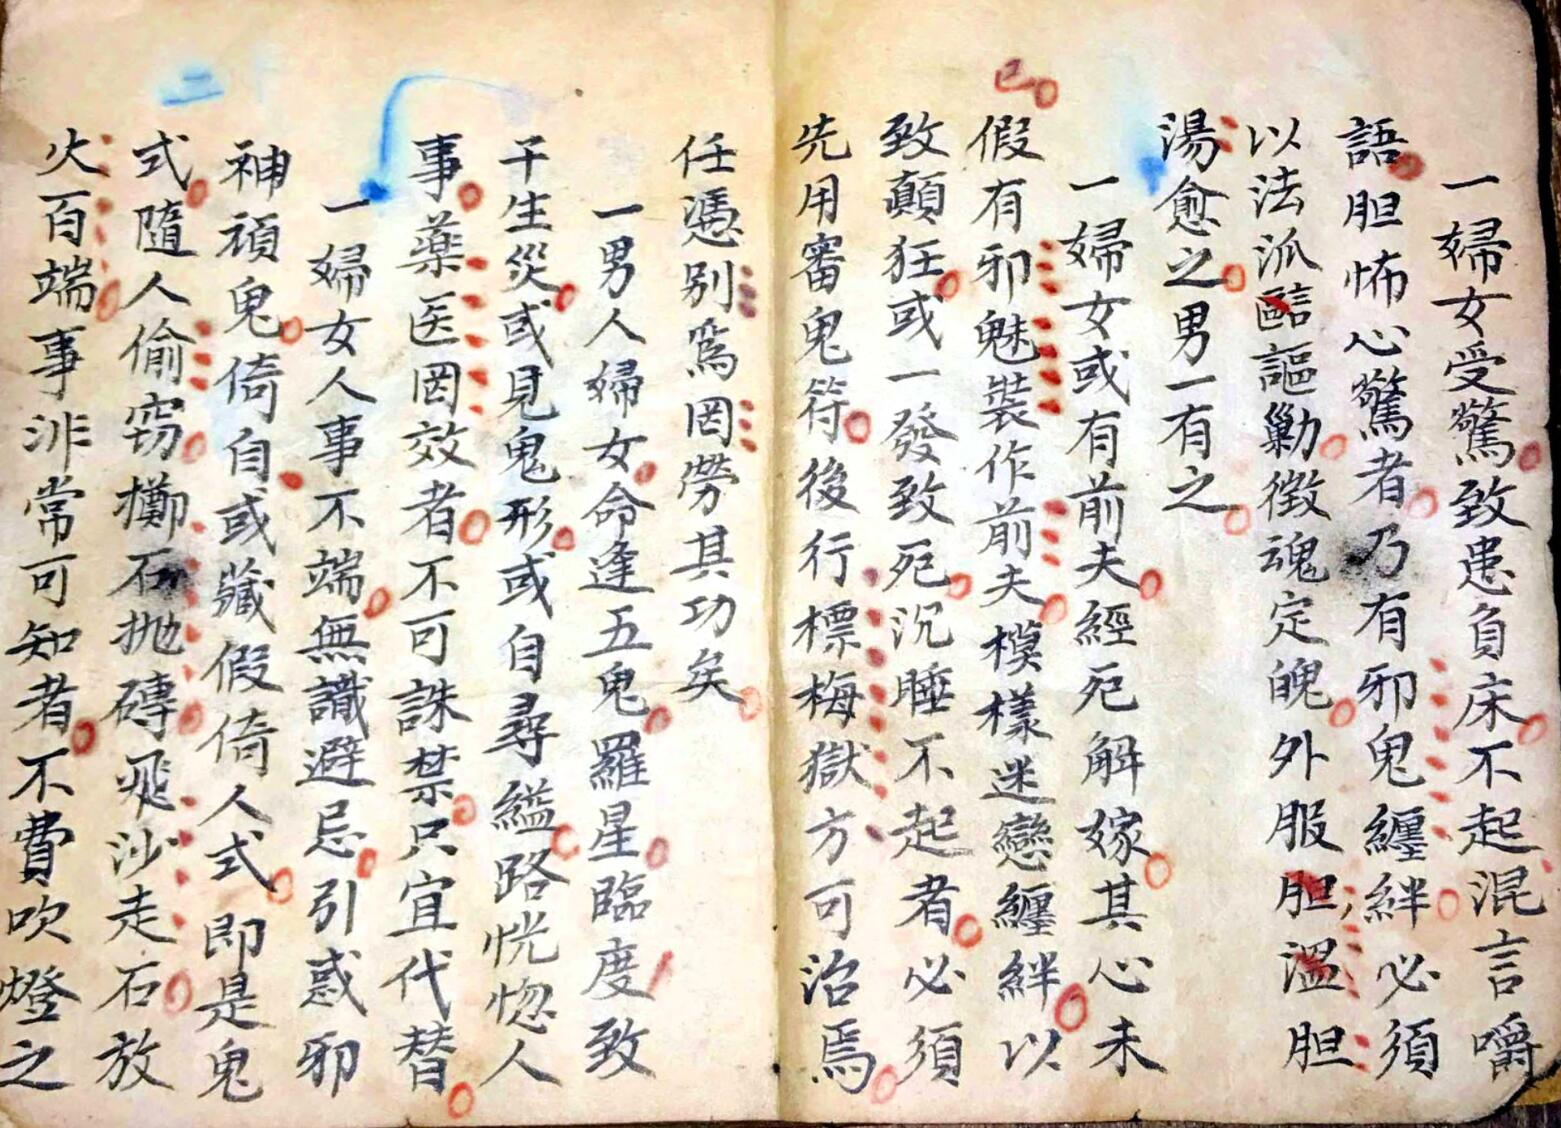 一婦女受驚致患負床不起混言嚼
語胆怖心驚者乃有邪鬼纏絆必須
以法派謳勦徴魂定魄外服胆温胆
湯愈之男一有之
一婦女或有前夫經死解嫁其心未
已
假有邪魅裝作前夫模樣迷戀纏絆以
致顛狂或一發致死沉睡不起者必須
先用審鬼符後行標梅獄方可治焉
任憑别爲罔勞其功矣
一男人婦女命逢五鬼羅星臨度致
干生災或見鬼形或自尋縊路恍惚人
事藥医罔效者不可誅禁只宜代替
一婦女人事不端無識避忌引惑邪
神頑鬼倚自或藏假倚人式即是鬼
二
式隨人偷窃擲石抛磚飛沙走石放
火百端事非常可知者不費吹燈之